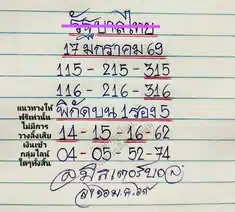 รัฐบาลไทย
17 มกราคม 69
115 - 215 - 315
116 - 216 - 316
แนวทางให้
ฟรีเท่านั้น
ไม่มีการ
วางสิ่งเดิม
เงินเข้า
กลุ่มไลน์
ใดๆทั้งสิ้น
พิกัดบน 1 รอง 5
14 - 15 - 16 - 62
04 - 05 - 52 - 74